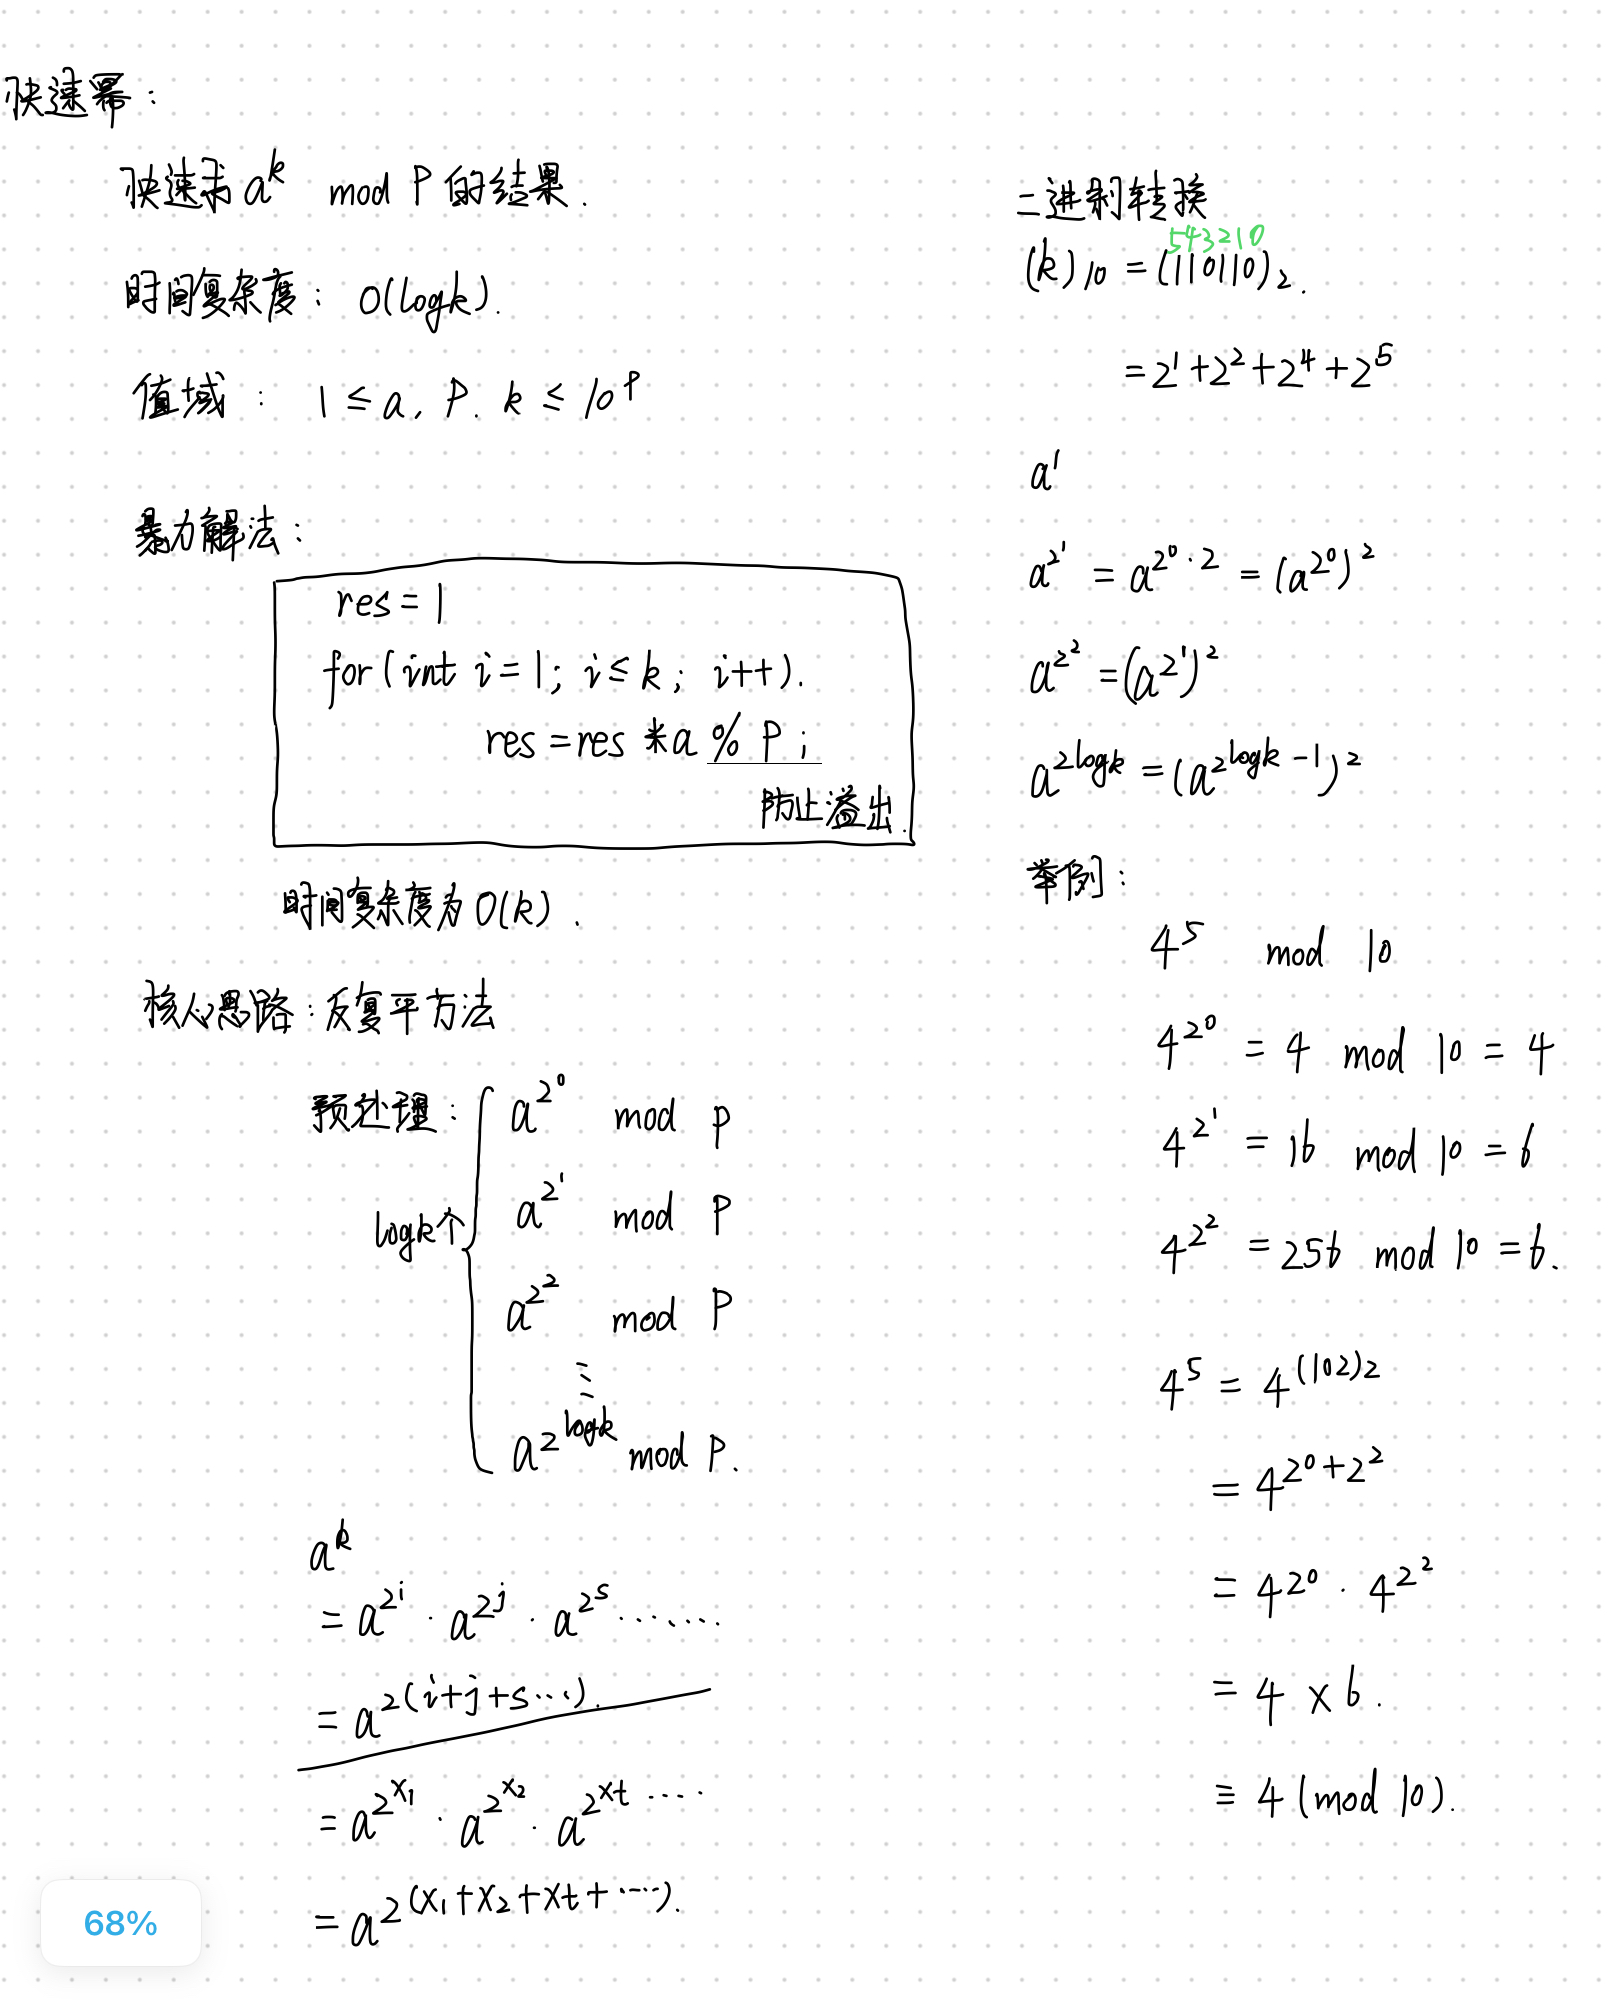 快速幂：
快速求 a^k mod P 的结果.
时间复杂度： O(logk).
值域： 1 ≤ a, P. k ≤ 10^9
暴力解法：
res = 1
for (int i = 1; i ≤ k; i++).
res = res * a % P;
防止溢出.
时间复杂度为 O(k).
核心思路：反复平方法
预处理：
logk个
a^{2^0} mod p
a^{2^1} mod P
a^{2^2} mod P
⋮
a^{2^{logk}} mod P.
a^k
= a^{2^i} · a^{2^j} · a^{2^s} ⋯⋯
= a^{2^{(i+j+s⋯)}}.
= a^{2^{x_1}} · a^{2^{x_2}} · a^{2^{xt}} ⋯⋯
= a^{2^{(x_1+x_2+xt+⋯⋯)}}.
68%
二进制转换
543210
(k)_{10} = (110110)_2.
= 2^1 + 2^2 + 2^4 + 2^5
a^1
a^{2^1} = a^{2^0·2} = (a^{2^0})^2
a^{2^2} = (a^{2^1})^2
a^{2^{logk}} = (a^{2^{logk-1}})^2
举例：
4^5 mod 10
4^{2^0} = 4 mod 10 = 4
4^{2^1} = 16 mod 10 = 6
4^{2^2} = 256 mod 10 = 6.
4^5 = 4^{(102)_2}
= 4^{2^0+2^2}
= 4^{2^0} · 4^{2^2}
= 4 × 6.
≡ 4 (mod 10).